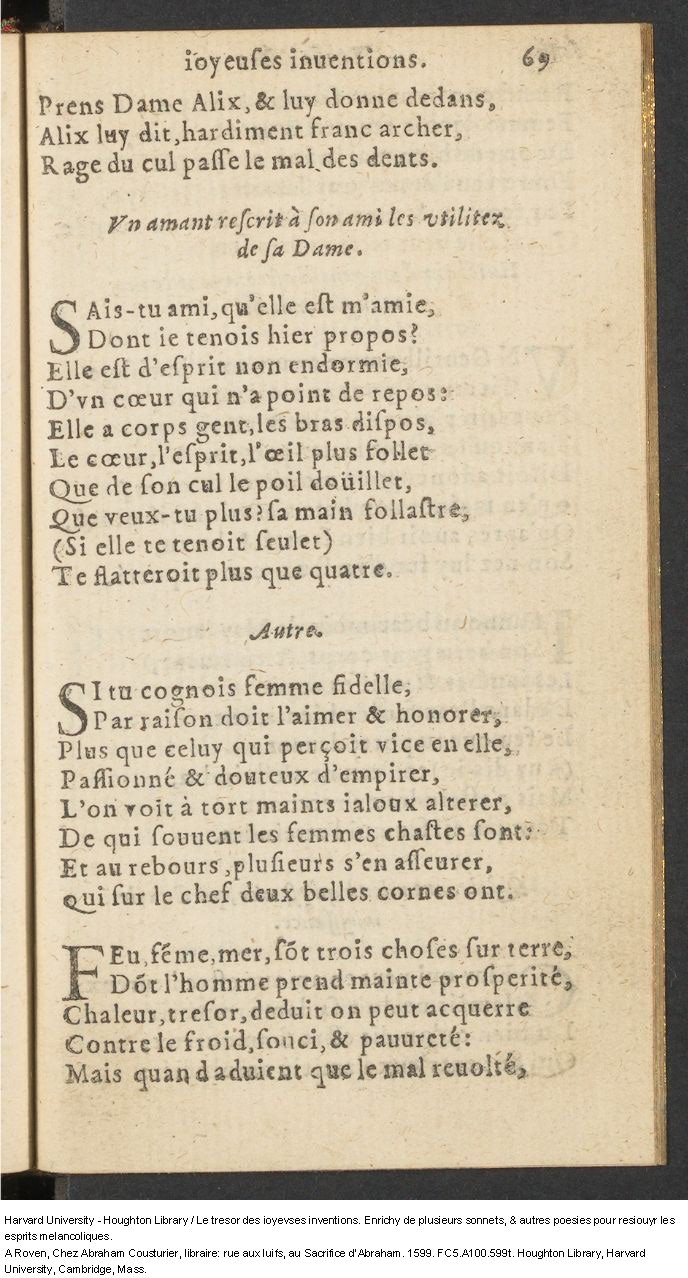 ioyeuſes inuentions. 69
Prens Dame Alix, & luy donne dedans,
Alix luy dit, hardiment franc archer,
Rage du cul paſſe le mal des dents.
Vn amant reſcrit à ſon ami les vtilitez
de ſa Dame.
SAis-tu ami, qu'elle eſt m'amie,
Dont ie tenois hier propos?
Elle eſt d'eſprit non endormie,
D'vn cœur qui n'a point de repos:
Elle a corps gent, les bras diſpos,
Le cœur, l'eſprit, l'œil plus follet
Que de ſon cul le poil doüillet,
Que veux-tu plus? ſa main follaſtre,
(Si elle te tenoit ſeulet)
Te flatteroit plus que quatre.
Autre.
SI tu cognois femme fidelle,
Par raiſon doit l'aimer & honorer,
Plus que celuy qui perçoit vice en elle,
Paſſionné & douteux d'empirer,
L'on voit à tort maints ialoux alterer,
De qui ſouuent les femmes chaſtes ſont:
Et au rebours, pluſieurs s'en aſſeurer,
Qui ſur le chef deux belles cornes ont.
FEu, féme, mer, ſõt trois choſes ſur terre,
Dõt l'homme prend mainte proſperité,
Chaleur, treſor, deduit on peut acquerre
Contre le froid, ſouci, & pauureté:
Mais quand aduient que le mal reuolté,
Harvard University - Houghton Library / Le tresor des ioyevses inventions. Enrichy de plusieurs sonnets, & autres poesies pour resiouyr les
esprits melancoliques.
A Roven, Chez Abraham Cousturier, libraire: rue aux Iuifs, au Sacrifice d'Abraham. 1599. FC5.A100.599t. Houghton Library, Harvard
University, Cambridge, Mass.